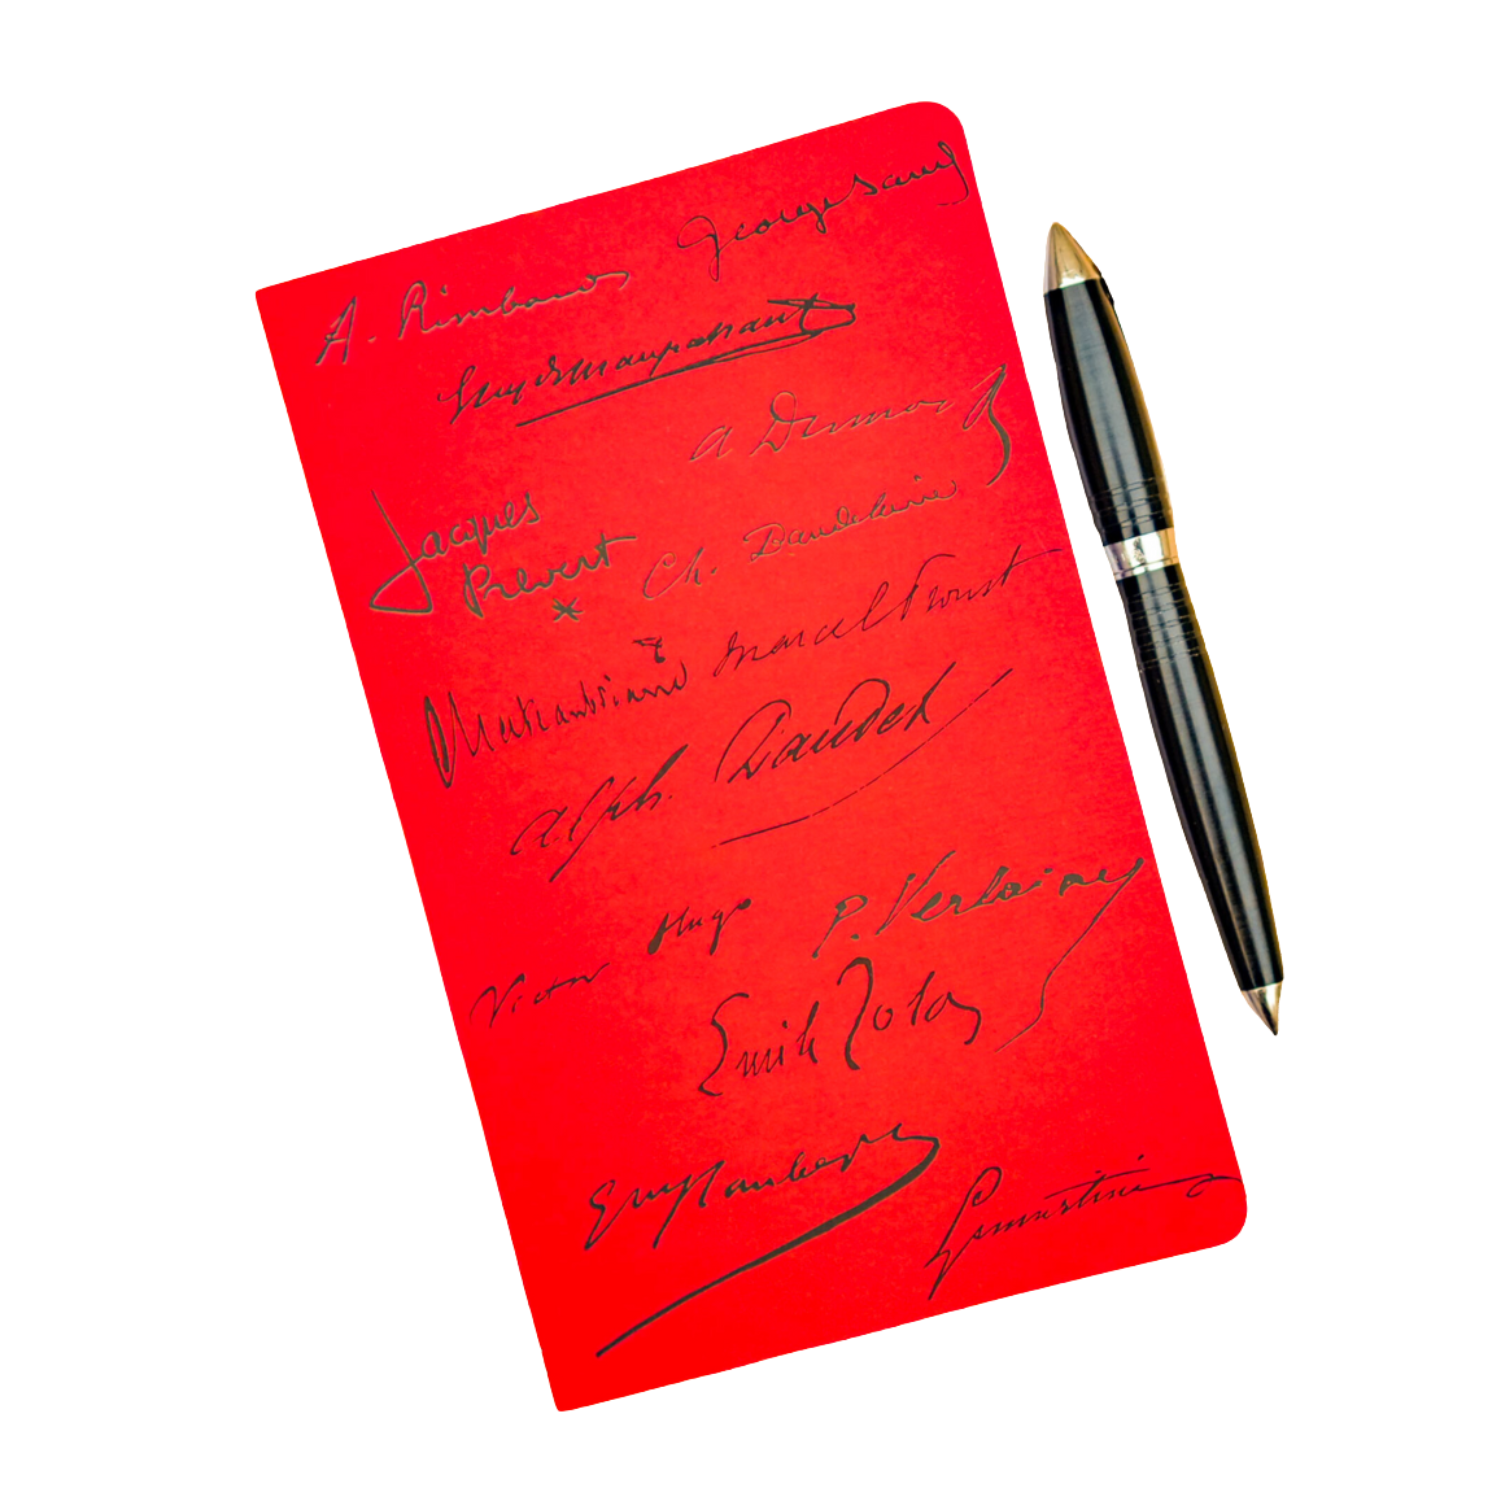 George Sand
A. Rimbaud
Guy de Maupassant
A Dumas
Jacques
Prévert
Ch. Baudelaire
Marcel Proust
Chateaubriand
Alph. Daudet
Victor Hugo
P. Verlaine
Emile Zola
Gve Flaubert
Lamartine